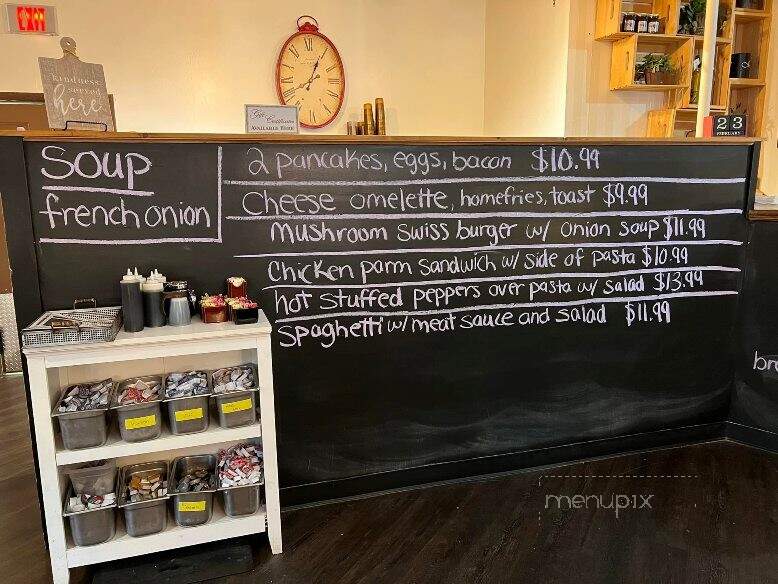 EXIT
kindness
served
here
Gift
Certificates
AVAILABLE HERE
23
FEBRUARY
Soup
french onion
2 pancakes, eggs, bacon $10.99
Cheese omelette, homefries, toast $9.99
Mushroom Swiss burger w/ onion soup $11.99
Chicken parm Sandwich w/ side of pasta $10.99
hot stuffed peppers over pasta w/ salad $13.99
Spaghetti w/ meat sauce and salad $11.99
br
menupix